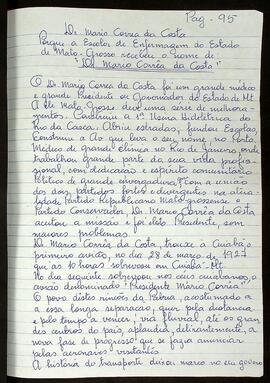 Pag - 95
Dr. Mario Corrêa da Costa
Porque a Escola de Enfermagem do Estado
de Mato-Grosso recebeu o nome de
"Dr. Mario Corrêa da Costa"
O Dr. Mario Corrêa da Costa foi um grande médico
e grande Presidente ou Governador do Estado de Mt.
A ele Mato Grosso deve uma série de melhora-
mentos. Construiu a 1ª Usina Hidrelétrica do
Rio da Casca. Abriu estradas, fundou Escolas,
Construiu a que leva o seu nome, no Porto
Médico de grande clínica no Rio de Janeiro, onde
trabalhou grande parte da sua vida profis-
sional, com dedicação e espírito comunitário
Político de grande envergadura. Com a união
dos dois partidos fortes divergentes na atua-
lidade, Partido Republicano Mato-grossense e
Partido Conservador, Dr. Mario Corrêa da Costa
aceitou a missão e foi eleito Presidente, sem
maiores problemas.
Dr. Mario Corrêa da Costa, trouxe a Cuiabá, o
primeiro avião, no dia 28 de março, de 1927
que às 10 horas sobrevoou em Cuiabá-Mt.
No dia seguinte sobrevoou nos céus cuiabanos, o
avião denominado "Presidente Mário Corrêa"
O povo destes rincões da Pátria, acostumado a
a essa longa separação, quer pela distancia
e pelo tempo a vencer, via fluvial, até os gran
des centros do país, aplaudia, delirantemente, a
nova fase de progresso que se fazia anunciar
pelas aeronaves visitantes
A história do transporte deixou marco no seu governo